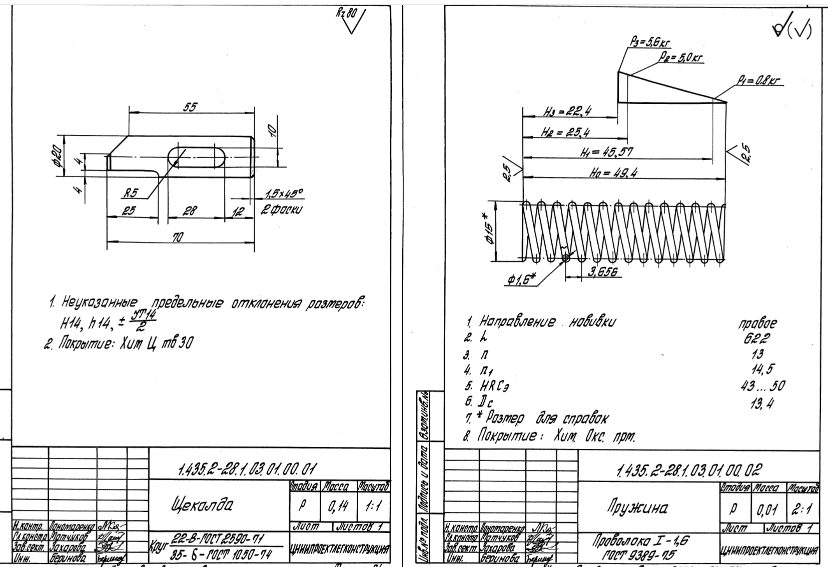 Rz 80
55
φ20
4
4
10
R5
1,5×45°
2 фаски
25
28
12
70
1. Неуказанные предельные отклонения размеров:
H14, h14, ± JT14/2
2. Покрытие: Хим Ц, тв 30
1.435.2-28.1.03.01.00.01
Щеколда
Стадия Масса Масштаб
Р 0,14 1:1
Лист Листов 1
Н.контр. Пономаренко
Гл.констр. Матчиков
Зав.сект. Захарова
Инж.
Круг 22-В-ГОСТ 2590-71
35-б-ГОСТ 1030-74
ЦНИИПРОЕКТЛЕГКОНСТРУКЦИЯ
(√)
P3=5,6кг
P2=5,0кг
P1=0,8кг
H3=22,4
H2=25,4
H1=45,57
H0=49,4
2,5
2,5
φ15*
φ1,6*
3,656
1. Направление навивки правое
2. L 622
3. n 13
4. n1 14,5
5. HRCэ 43...50
6. Dc 13,4
7. * Размер для справок
8. Покрытие: Хим. Окс. прм.
Взам.инв.№
Подпись и дата
Инв.№ подл.
1.435.2-28.1.03.01.00.02
Пружина
Стадия Масса Масштаб
Р 0,01 2:1
Лист Листов 1
Н.контр. Пономаренко
Гл.констр. Матчиков
Зав.сект. Захарова
Инж.
Проволока I-1,6
ГОСТ 9389-75
ЦНИИПРОЕКТЛЕГКОНСТРУКЦИЯ